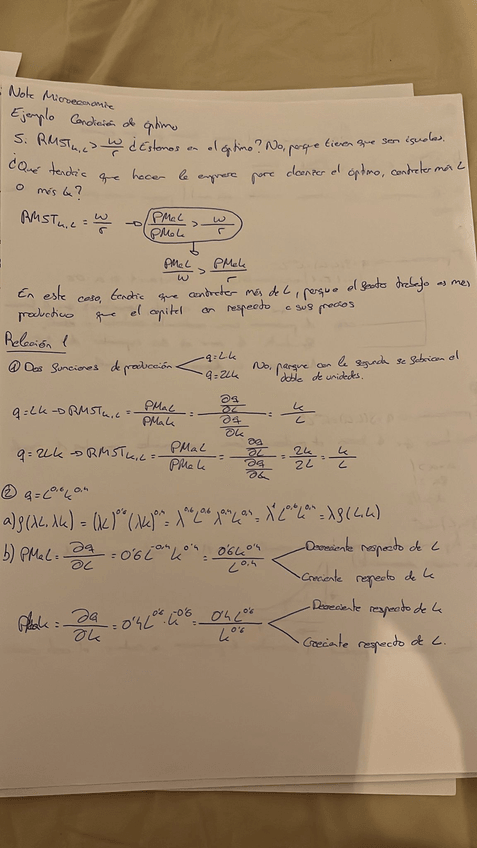 Note Microeconomia
Ejemplo Condición de óptimo
S. RMST_{K,L} > w/r ¿Estamos en el óptimo? No, porque tienen que ser iguales.
¿Qué tendría que hacer la empresa para alcanzar el óptimo, contratar más L
o más K?
RMST_{K,L} = w/r → PMaL/PMaK > w/r
PMaL/w > PMaK/r
En este caso, tendría que contratar más de L, porque el trabajo es más
productivo que el capital con respecto a sus precios
Relación 1
① Dos funciones de producción q=LK q=2LK No, porque con la segunda se fabrican el
doble de unidades.
q=LK → RMST_{K,L} = PMaL/PMaK = (∂q/∂L)/(∂q/∂K) = K/L
q=2LK → RMST_{K,L} = PMaL/PMaK = (∂q/∂L)/(∂q/∂K) = 2K/2L = K/L
② q = L^{0'6} K^{0'4}
a) f(λL, λK) = (λL)^{0'6} (λK)^{0'4} = λ^{0'6} L^{0'6} λ^{0'4} K^{0'4} = λ^1 L^{0'6} K^{0'4} = λf(L,K)
b) PMaL = ∂q/∂L = 0'6 L^{-0'4} K^{0'4} = 0'6K^{0'4}/L^{0'4} Decreciente respecto de L
Creciente respecto de K
PMaK = ∂q/∂K = 0'4 L^{0'6} · K^{-0'6} = 0'4L^{0'6}/K^{0'6} Decreciente respecto de K
Creciente respecto de L.